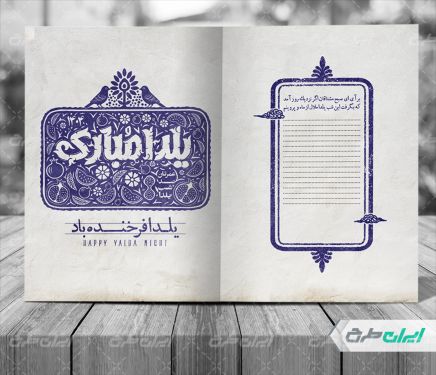 یلدا مبارک
یلدا فرخنده باد
HAPPY YALDA NIGHT
برآی ای صبح مشتاقان اگر نزدیک روز آمد
که بگرفت این شب یلدا ملال از ماه و پروینم
ایران طرح